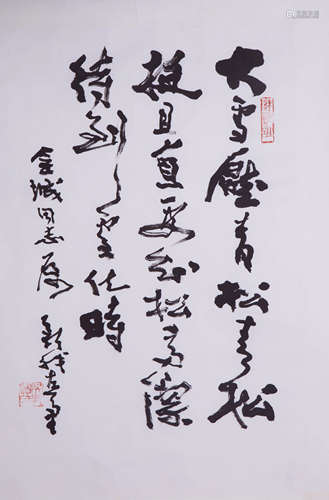 大雪壓青松青松
挺且直要知松高潔
待到雪化時
金城同志属